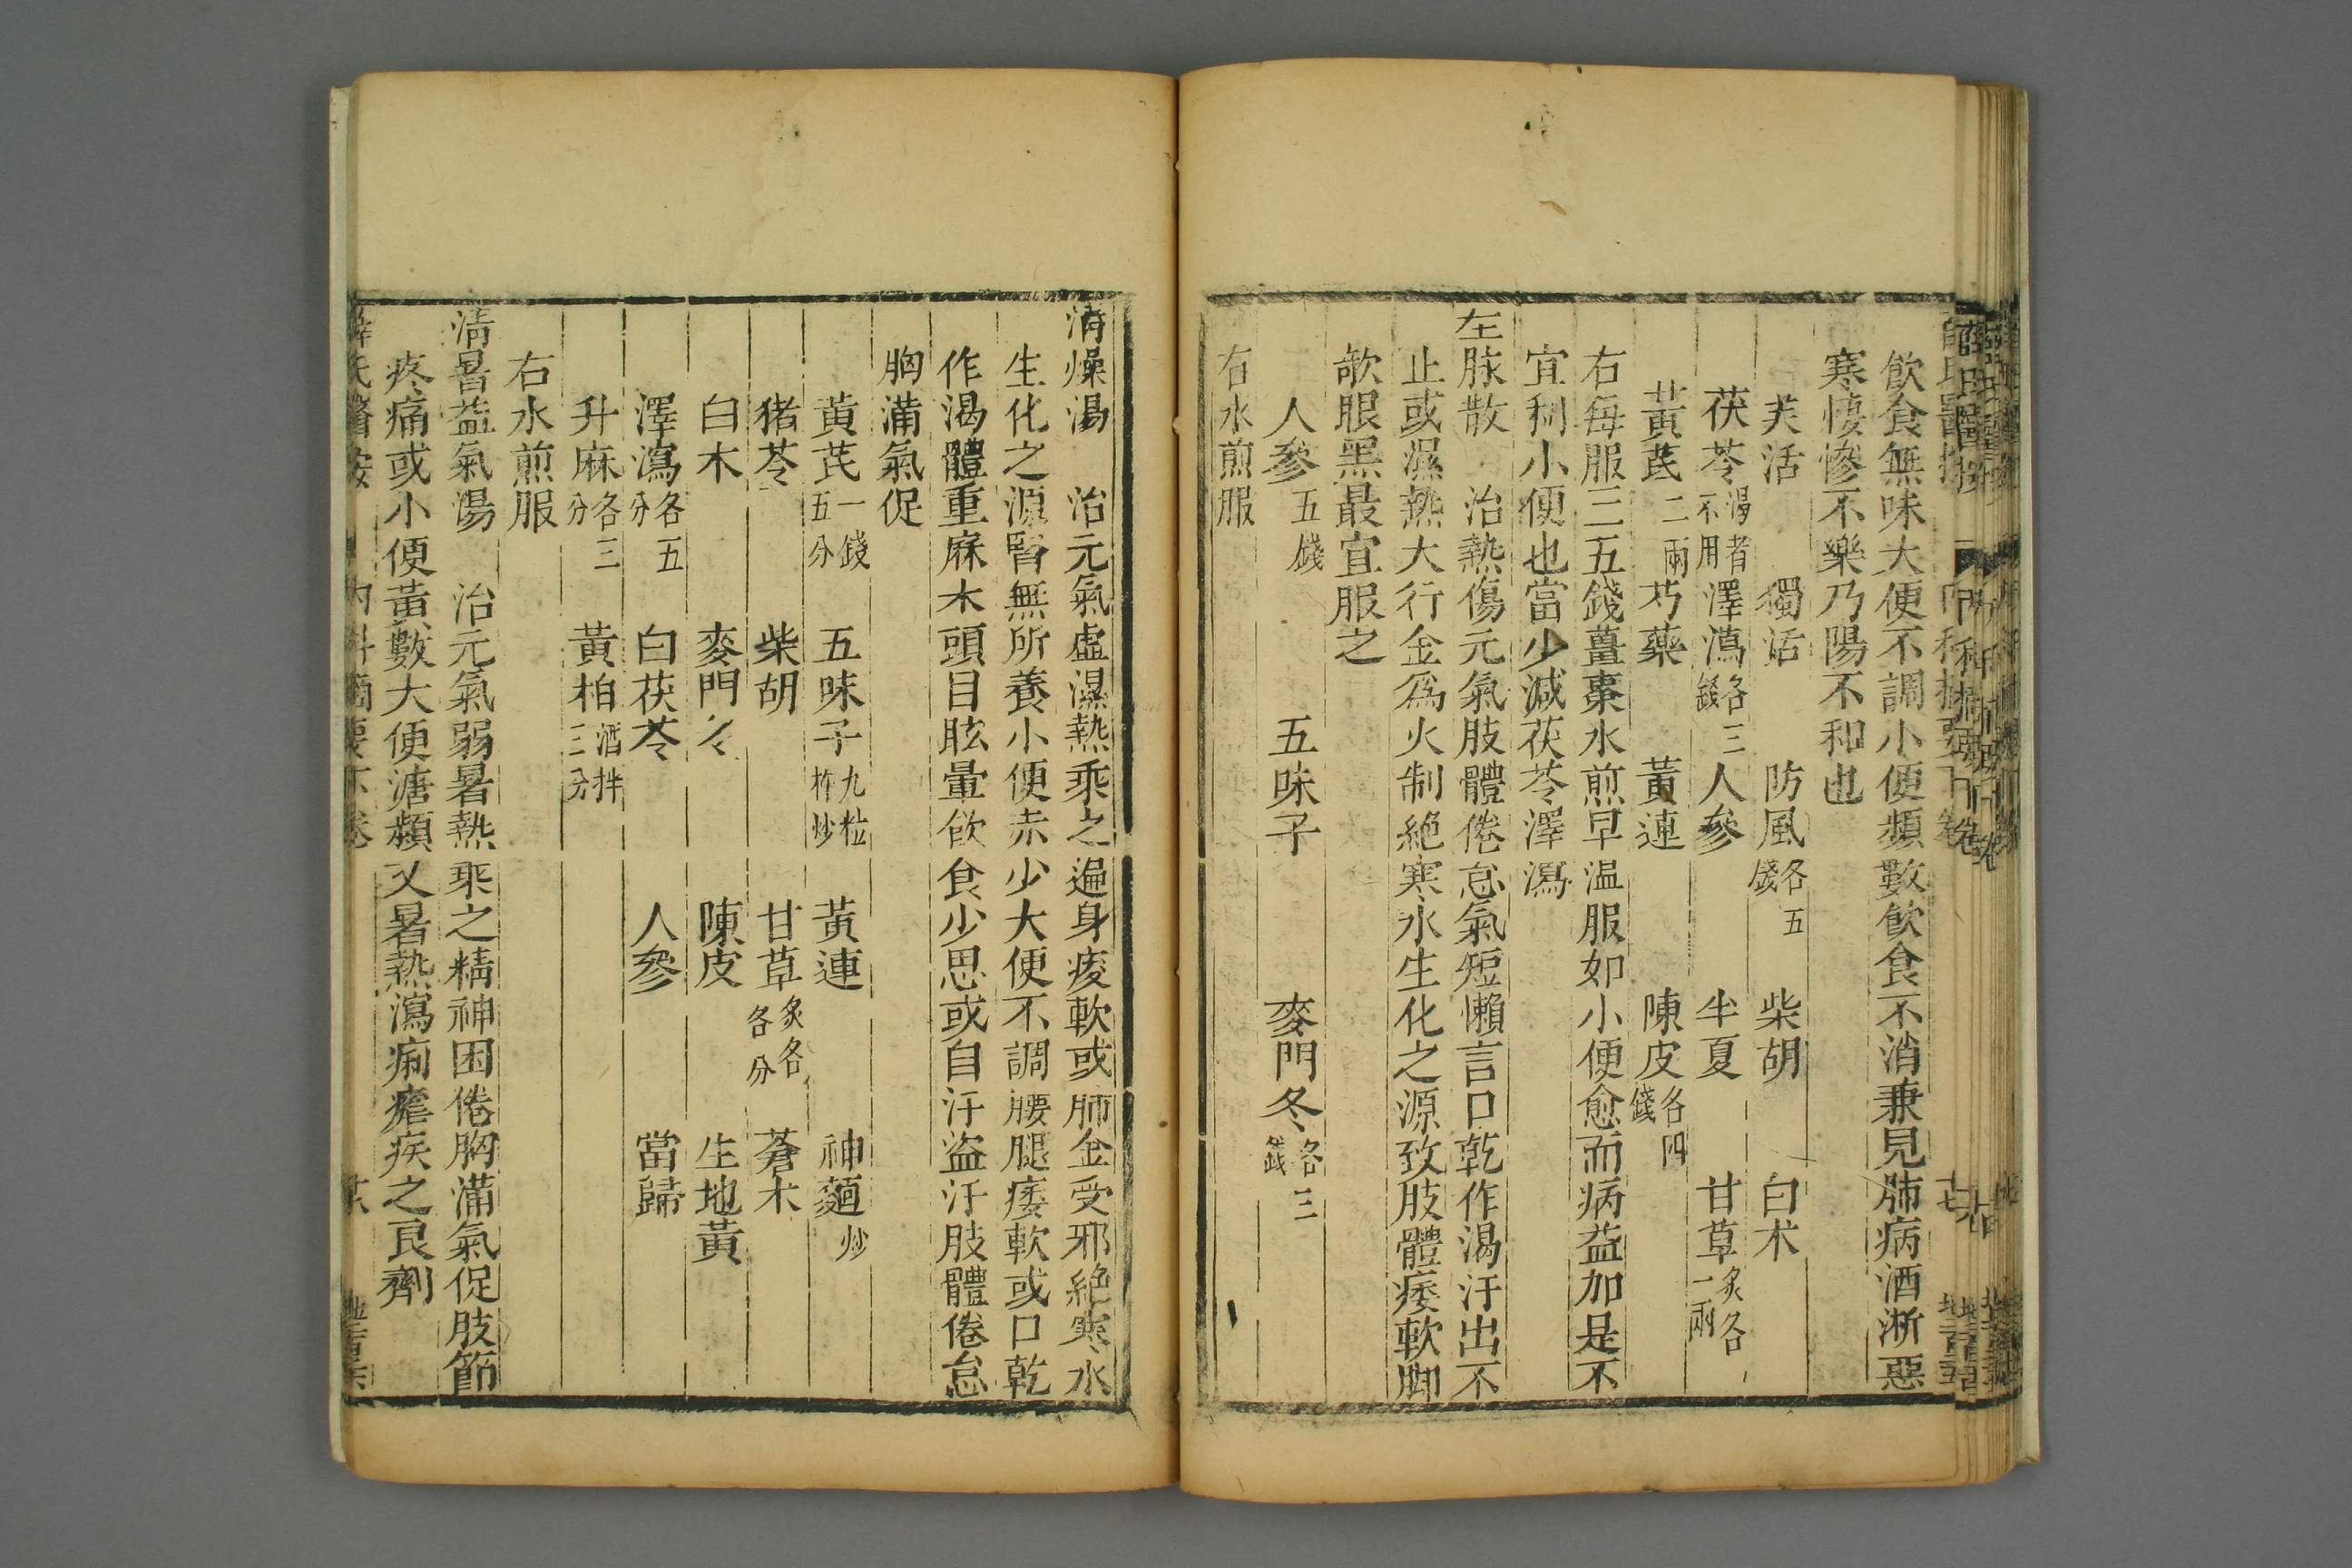 飲食無味大便不調小便頻數飲食不消兼見肺病洒淅惡
寒悽慘不樂乃陽不和也
羌活 獨活 防風各五錢 柴胡 白术
茯苓渴者不用 澤瀉各三錢 人參 半夏 甘草炙各一兩
黃芪二兩 芍藥 黃連 陳皮各四錢
右每服三五錢薑棗水煎早温服如小便愈而病益加是不
宜利小便也當少減茯苓澤瀉
生脉散 治熱傷元氣肢體倦怠氣短懶言口乾作渴汗出不
止或濕熱大行金爲火制絶寒水生化之源致肢體痿軟脚
欹眼黑最宜服之
人參五錢 五味子 麥門冬各三錢
右水煎服
清燥湯 治元氣虛濕熱乘之遍身痠軟或肺金受邪絶寒水
生化之源腎無所養小便赤少大便不調腰腿痿軟或口乾
作渴體重麻木頭目眩暈飲食少思或自汗盜汗肢體倦怠
胸滿氣促
黃芪一錢五分 五味子九粒杵炒 黃連 神麯炒
猪苓 柴胡 甘草炙各 各分 蒼术
白术 麥門冬 陳皮 生地黃
澤瀉各五分 白茯苓 人參 當歸
升麻各三分 黃柏酒拌三分
右水煎服
清暑益氣湯 治元氣弱暑熱乘之精神困倦胸滿氣促肢節
疼痛或小便黃數大便溏頻又暑熱瀉痢瘧疾之良劑
薛氏醫按 内科摘要下卷